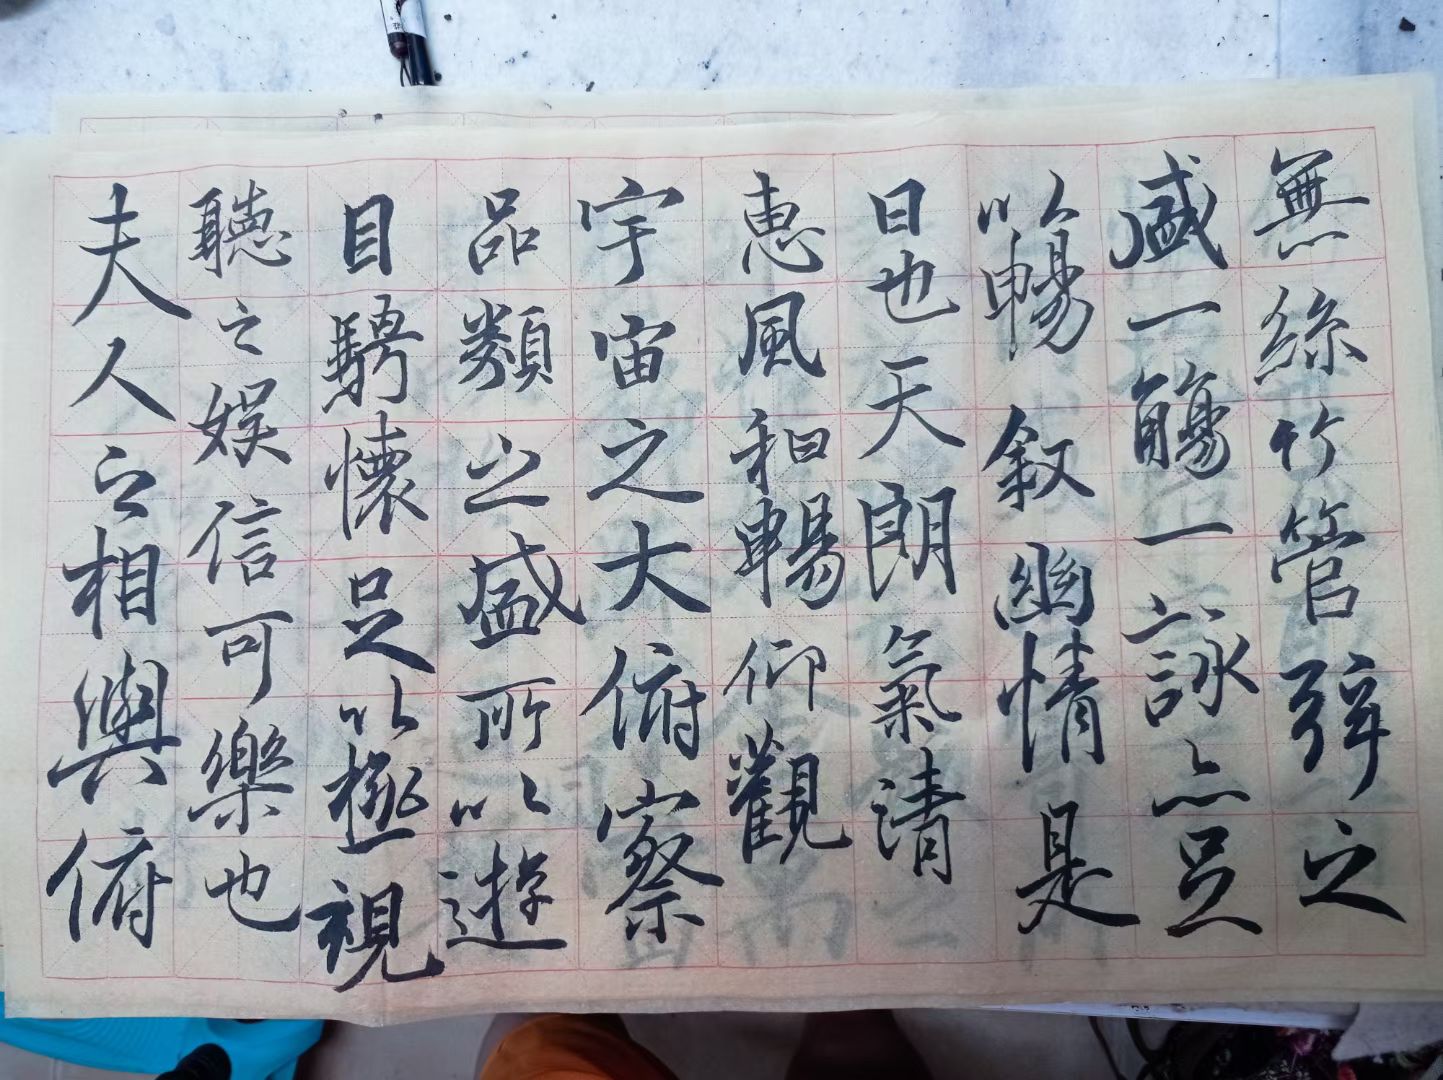 無絲竹管弦之
盛一觴一詠亦足
以暢敘幽情是
日也天朗氣清
惠風和暢仰觀
宇宙之大俯察
品類之盛所以遊
目騁懷足以極視
聽之娛信可樂也
夫人之相與俯